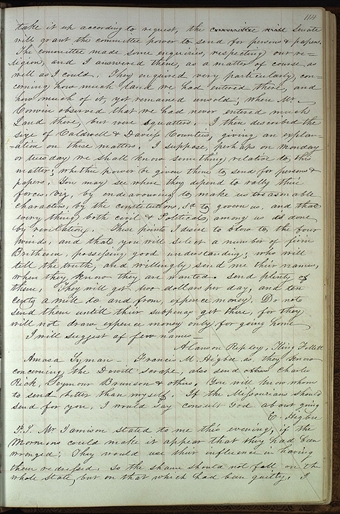 114
take it up according to request, the committee will Senate
will grant the committee power to send for persons & papers.
The committee made some enquiries, respecting our re-
ligion, and I answered them, as a matter of course, as
well as I could. They enquired very particularly, con-
cerning how much land we had entered there, and
how much of it, yet remained unsold; when Mr.
Corwin observed that we had never entered much
land there, but were squatters. I then described the
size of Caldwell & Davis Counties, giving an explan-
ation on these matters. I suppose, perhaps on Monday
or tuesday we shall know something relative to, this
matter; whether power be given them to send for persons &
papers. You may see where they depend to rally their
forces, viz, by endeavoring to make us treasonable
characters, by the constitution, &c to govern us, and that
every thing both civil & Political, among us is done
by revelation. These points I desire to blow to, the four
winds, and that you will select a number of firm
Bretheren, possessing good understanding; who will
tell the truth, and willingly send me their names,
when they know they are wanted. Send plenty of
them; They will get two dollars per day, and ten
cents a mile to and from, expence money. Do not
send them untill their subpenas get there, for they
will not draw expence money only for going home
I will suggest a few names
Alanson Ripley, King Follett
Amasa Lyman Francis M. Higbee as they know
concerning the Dewitt scrape, also send others Charles
Rich, Seymour Brunson & others. You will know whom
to send better than myself. If the Missourians should
send for you, I would say consult God about going
E. Higbee
P.S. Mr Jamison stated to me this evening, if the
Mormons could make it appear that they had been
wronged; They would use their influence in having
them redressed. So the shame should not fall on the
whole State but on that which had been guilty. I